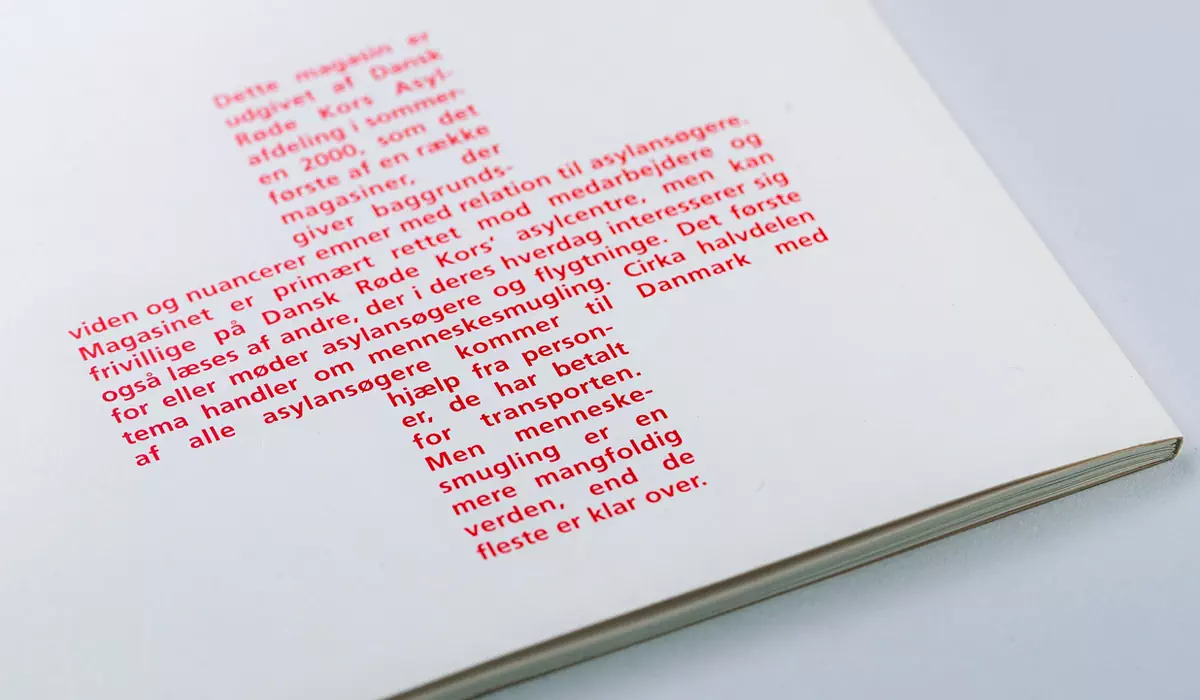 Dette magasin er
udgivet af Dansk
Røde Kors Asyl-
afdeling i sommer-
en 2000, som det
første af en række
magasiner, der
giver baggrunds-
viden og nuancerer emner med relation til asylansøgere.
Magasinet er primært rettet mod medarbejdere og
frivillige på Dansk Røde Kors' asylcentre, men kan
også læses af andre, der i deres hverdag interesserer sig
for eller møder asylansøgere og flygtninge. Det første
tema handler om menneskesmugling. Cirka halvdelen
af alle asylansøgere kommer til Danmark med
hjælp fra person-
er, de har betalt
for transporten.
Men menneske-
smugling er en
mere mangfoldig
verden, end de
fleste er klar over.